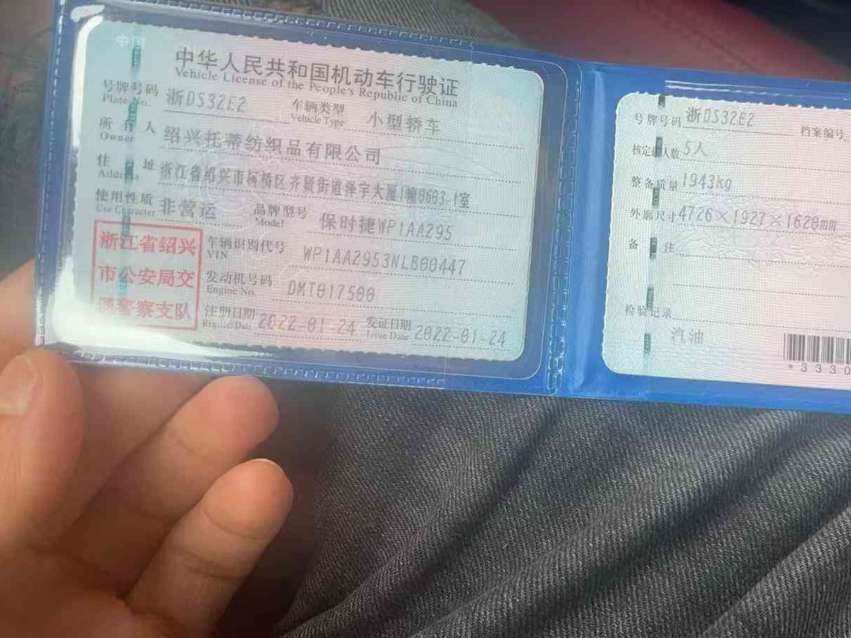 中华人民共和国机动车行驶证
Vehicle License of the People's Republic of China
号牌号码 浙DS32E2 车辆类型 小型轿车
Plate No. Vehicle Type
所有人 绍兴托蒂纺织品有限公司
Owner
住址 浙江省绍兴市柯桥区齐贤街道泽宇大厦1幢0603-1室
Address
使用性质 非营运 品牌型号 保时捷WP1AA295
Use Character Model
浙江省绍兴
市公安局交
通警察支队
车辆识别代号 WP1AA2953NLB00447
VIN
发动机号码 DMT017500
Engine No.
注册日期 2022-01-24 发证日期 2022-01-24
Register Date Issue Date
号牌号码 浙DS32E2 档案编号
核定载人数 5人
整备质量 1943kg
外廓尺寸 4726×1927×1620mm
备注
检验记录
汽油
*3330